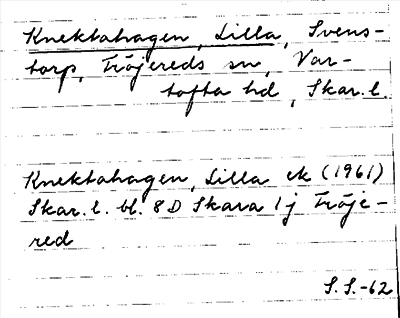 Knektahagen, Lilla, Svens-
torp, Tröjereds sn, Var-
tofta hd, Skar. l.
Knektahagen, Lilla ek (1961)
Skar. l. bl. 8D Skara 1j Tröje-
red
S. S. -62